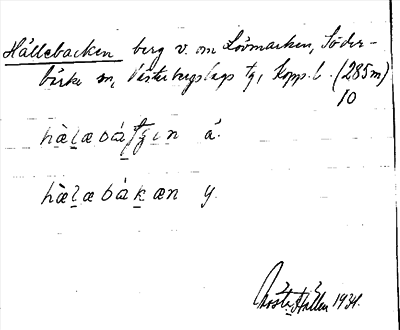 Hällebacken berg v. om Lövmarken, Söder-
bärke sn, Västerbergslags tg, Kopp. l. (285m)
10
hæ̀læbátʃɪn ä.
hæ̀læbákæn y.
Gösta Hallen 1934.